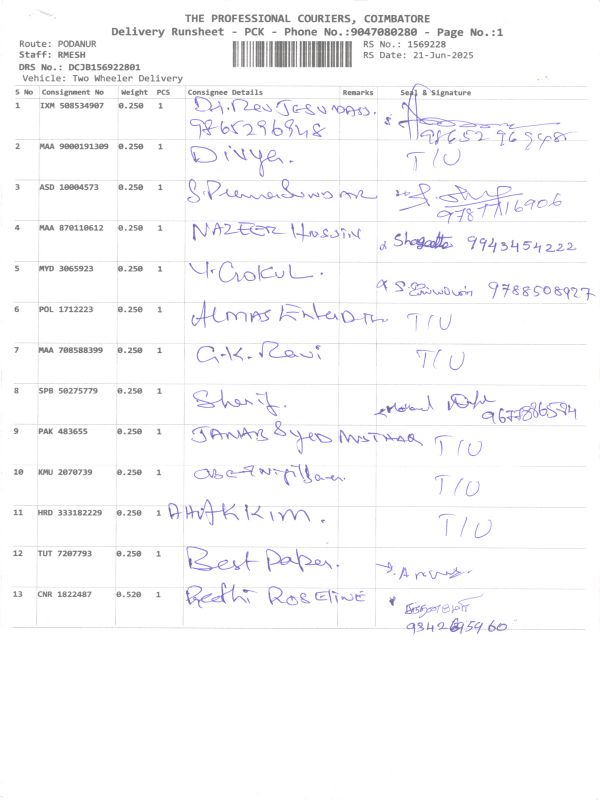 THE PROFESSIONAL COURIERS, COIMBATORE
Delivery Runsheet - PCK - Phone No.:9047080280 - Page No.:1
Route: PODANUR RS No.: 1569228
Staff: RMESH RS Date: 21-Jun-2025
DRS No.: DCJB156922801
Vehicle: Two Wheeler Delivery
S No Consignment No Weight PCS Consignee Details Remarks Seal & Signature
1 IXM 508534907 0.250 1 Dr. Rev JESUDASS.
9865296948 9865296948
2 MAA 9000191309 0.250 1 Divya. T/U
3 ASD 10004573 0.250 1
9787116906
4 MAA 870110612 0.250 1 NAZEER HUSSAIN 9943454222
5 MYD 3065923 0.250 1 Y. GOKUL. 9788508927
6 POL 1712223 0.250 1 ALMAS T/U
7 MAA 708588399 0.250 1 G.K. Ravi T/U
8 SPB 50275779 0.250 1 Sherif.
9677886594
9 PAK 483655 0.250 1 JANAB Syed T/U
10 KMU 2070739 0.250 1 T/U
11 HRD 333182229 0.250 1 T/U
12 TUT 7207793 0.250 1 Best Paper.
13 CNR 1822487 0.520 1 ROSELINE